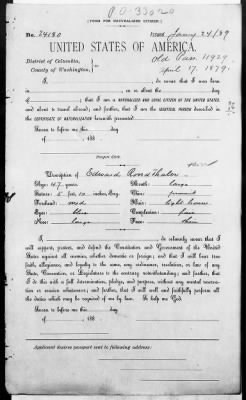 [FORM FOR NATURALIZED CITIZEN.]
No. 24180
Issued Jany 24/89
UNITED STATES OF AMERICA.
District of Columbia,
County of Washington,
Old Pass. 11929
April 17, 1879.
I, , do swear that I was born
in , on or about the day
of ; that I am a NATURALIZED AND LOYAL CITIZEN OF THE UNITED STATES,
and about to travel abroad; and further, that I am the IDENTICAL PERSON described in
the CERTIFICATE OF NATURALIZATION herewith presented.
Sworn to before me this day
of , 188
Description of Edward
Age: 47 years
Mouth: large
Stature: 5 feet, 10 inches, Eng.
Chin: round
Forehead: med.
Hair: light brown
Eyes: blue
Complexion: fair
Nose: large
Face: thin
I, , do solemnly swear that I
will support, protect, and defend the Constitution and Government of the United
States against all enemies, whether domestic or foreign; and that I will bear true
faith, allegiance, and loyalty to the same, any ordinance, resolution, or law of any
State, Convention, or Legislature to the contrary notwithstanding; and further, that
I do this with a full determination, pledge, and purpose, without any mental reserva-
tion or evasion whatsoever; and further, that I will well and faithfully perform all
the duties which may be required of me by law. So help me God.
Sworn to before me this day
of , 188
Applicant desires passport sent to following address: